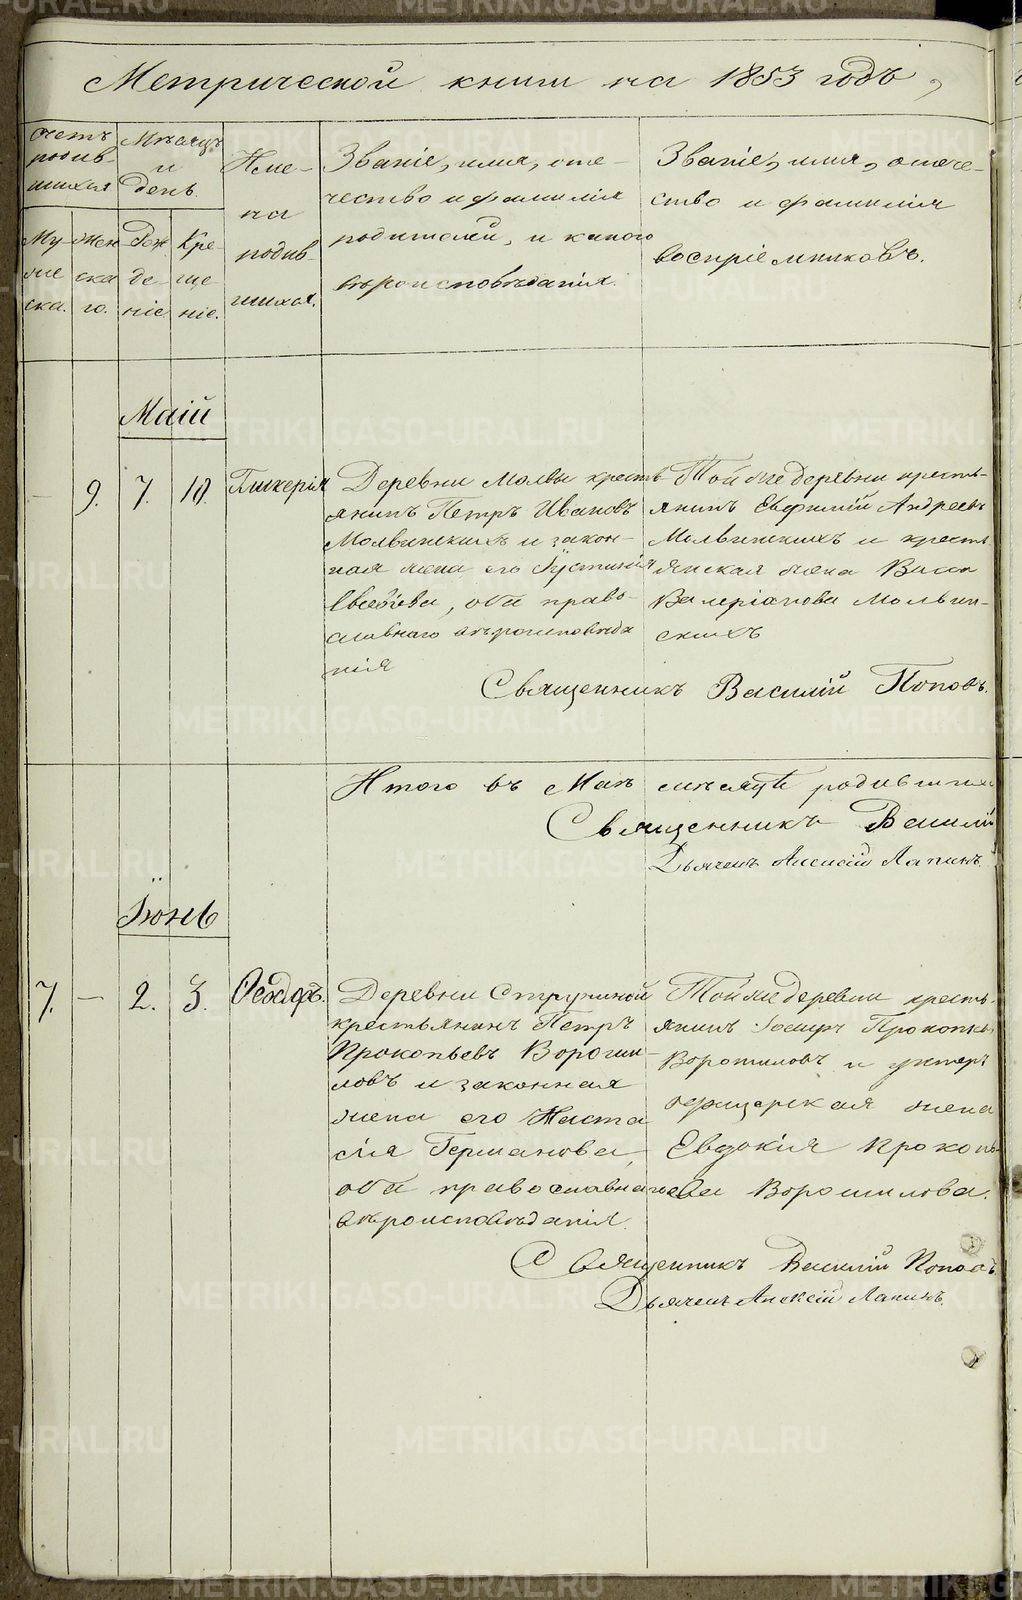 Метрической книги на 1853 годъ,
Счетъ
родив-
шихся
Мѣсяцъ
и
день.
Му-
же
ска.
Жен
ска
го.
Рож
де-
ніе
Кре-
ще
ніе.
Име-
на
родив-
шихся.
Званіе, имя, оте-
чество и фамилія
родителей, и какого
вѣроисповѣданія.
Званіе, имя, отече-
ство и фамилія
воспріемниковъ.
Маій
9. 7. 10. Гликерія
Деревни Молвы кресть
янинъ Петръ Ивановъ
Молвинскихъ и закон-
ная жена его Іустинія
Евсевіева, оба право-
славнаго вѣроисповѣда
нія
Той же деревни кресть-
янинъ Евфимій Андреевъ
Молвинскихъ и кресть
янская жена Васса
Валеріанова Молвин-
скихъ
Священникъ Василій Поповъ.
Итого въ Маѣ мѣсяцѣ родившихся
Священникъ Василій
Дьячекъ Алексій Лапинъ.
Іюнь
7. — 2. 3. Ѳеодоръ.
Деревни Струниной
крестьянинъ Петръ
Прокопьевъ Вороши-
ловъ и законная
жена его Наста
сія Германова,
оба православнаго
вѣроисповѣданія.
Той же деревни кресть-
янинъ Іосифъ Прокопьевъ
Ворошиловъ и унтеръ
офицерская жена
Евдокія Прокопь-
ева Ворошилова.
Священникъ Василій Поповъ
Дьячекъ Алексій Лапинъ.
METRIKI.GASO-URAL.RU